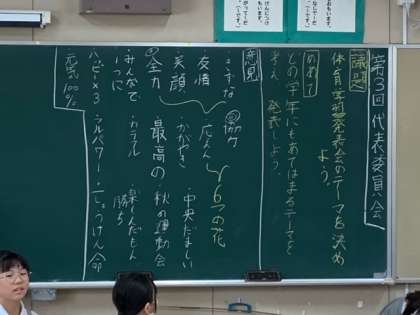 第3回 代表委員会
議題
体育学習発表会のテーマを決め
よう。
めあて
どの学年にもあてはまるテーマを
考え、発表しよう。
意見
きずな
協力
6つの花
友情
応えん
笑顔
かがやき
中央だましい
全力
最高の
秋の運動会
みんなで
1つに
カラフル
楽しだもん
勝ち
ハッピー×3
フルパワー
一しょうけん命
元気100%